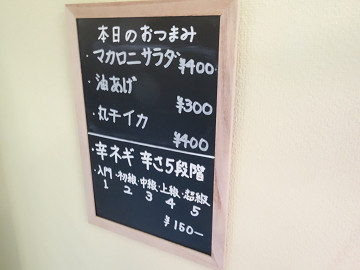 本日のおつまみ
・マカロニサラダ ¥400
・油あげ
¥300
・丸干イカ
¥400
・辛ネギ 辛さ5段階
・入門・初級・中級・上級・超級
1 2 3 4 5
¥150ー